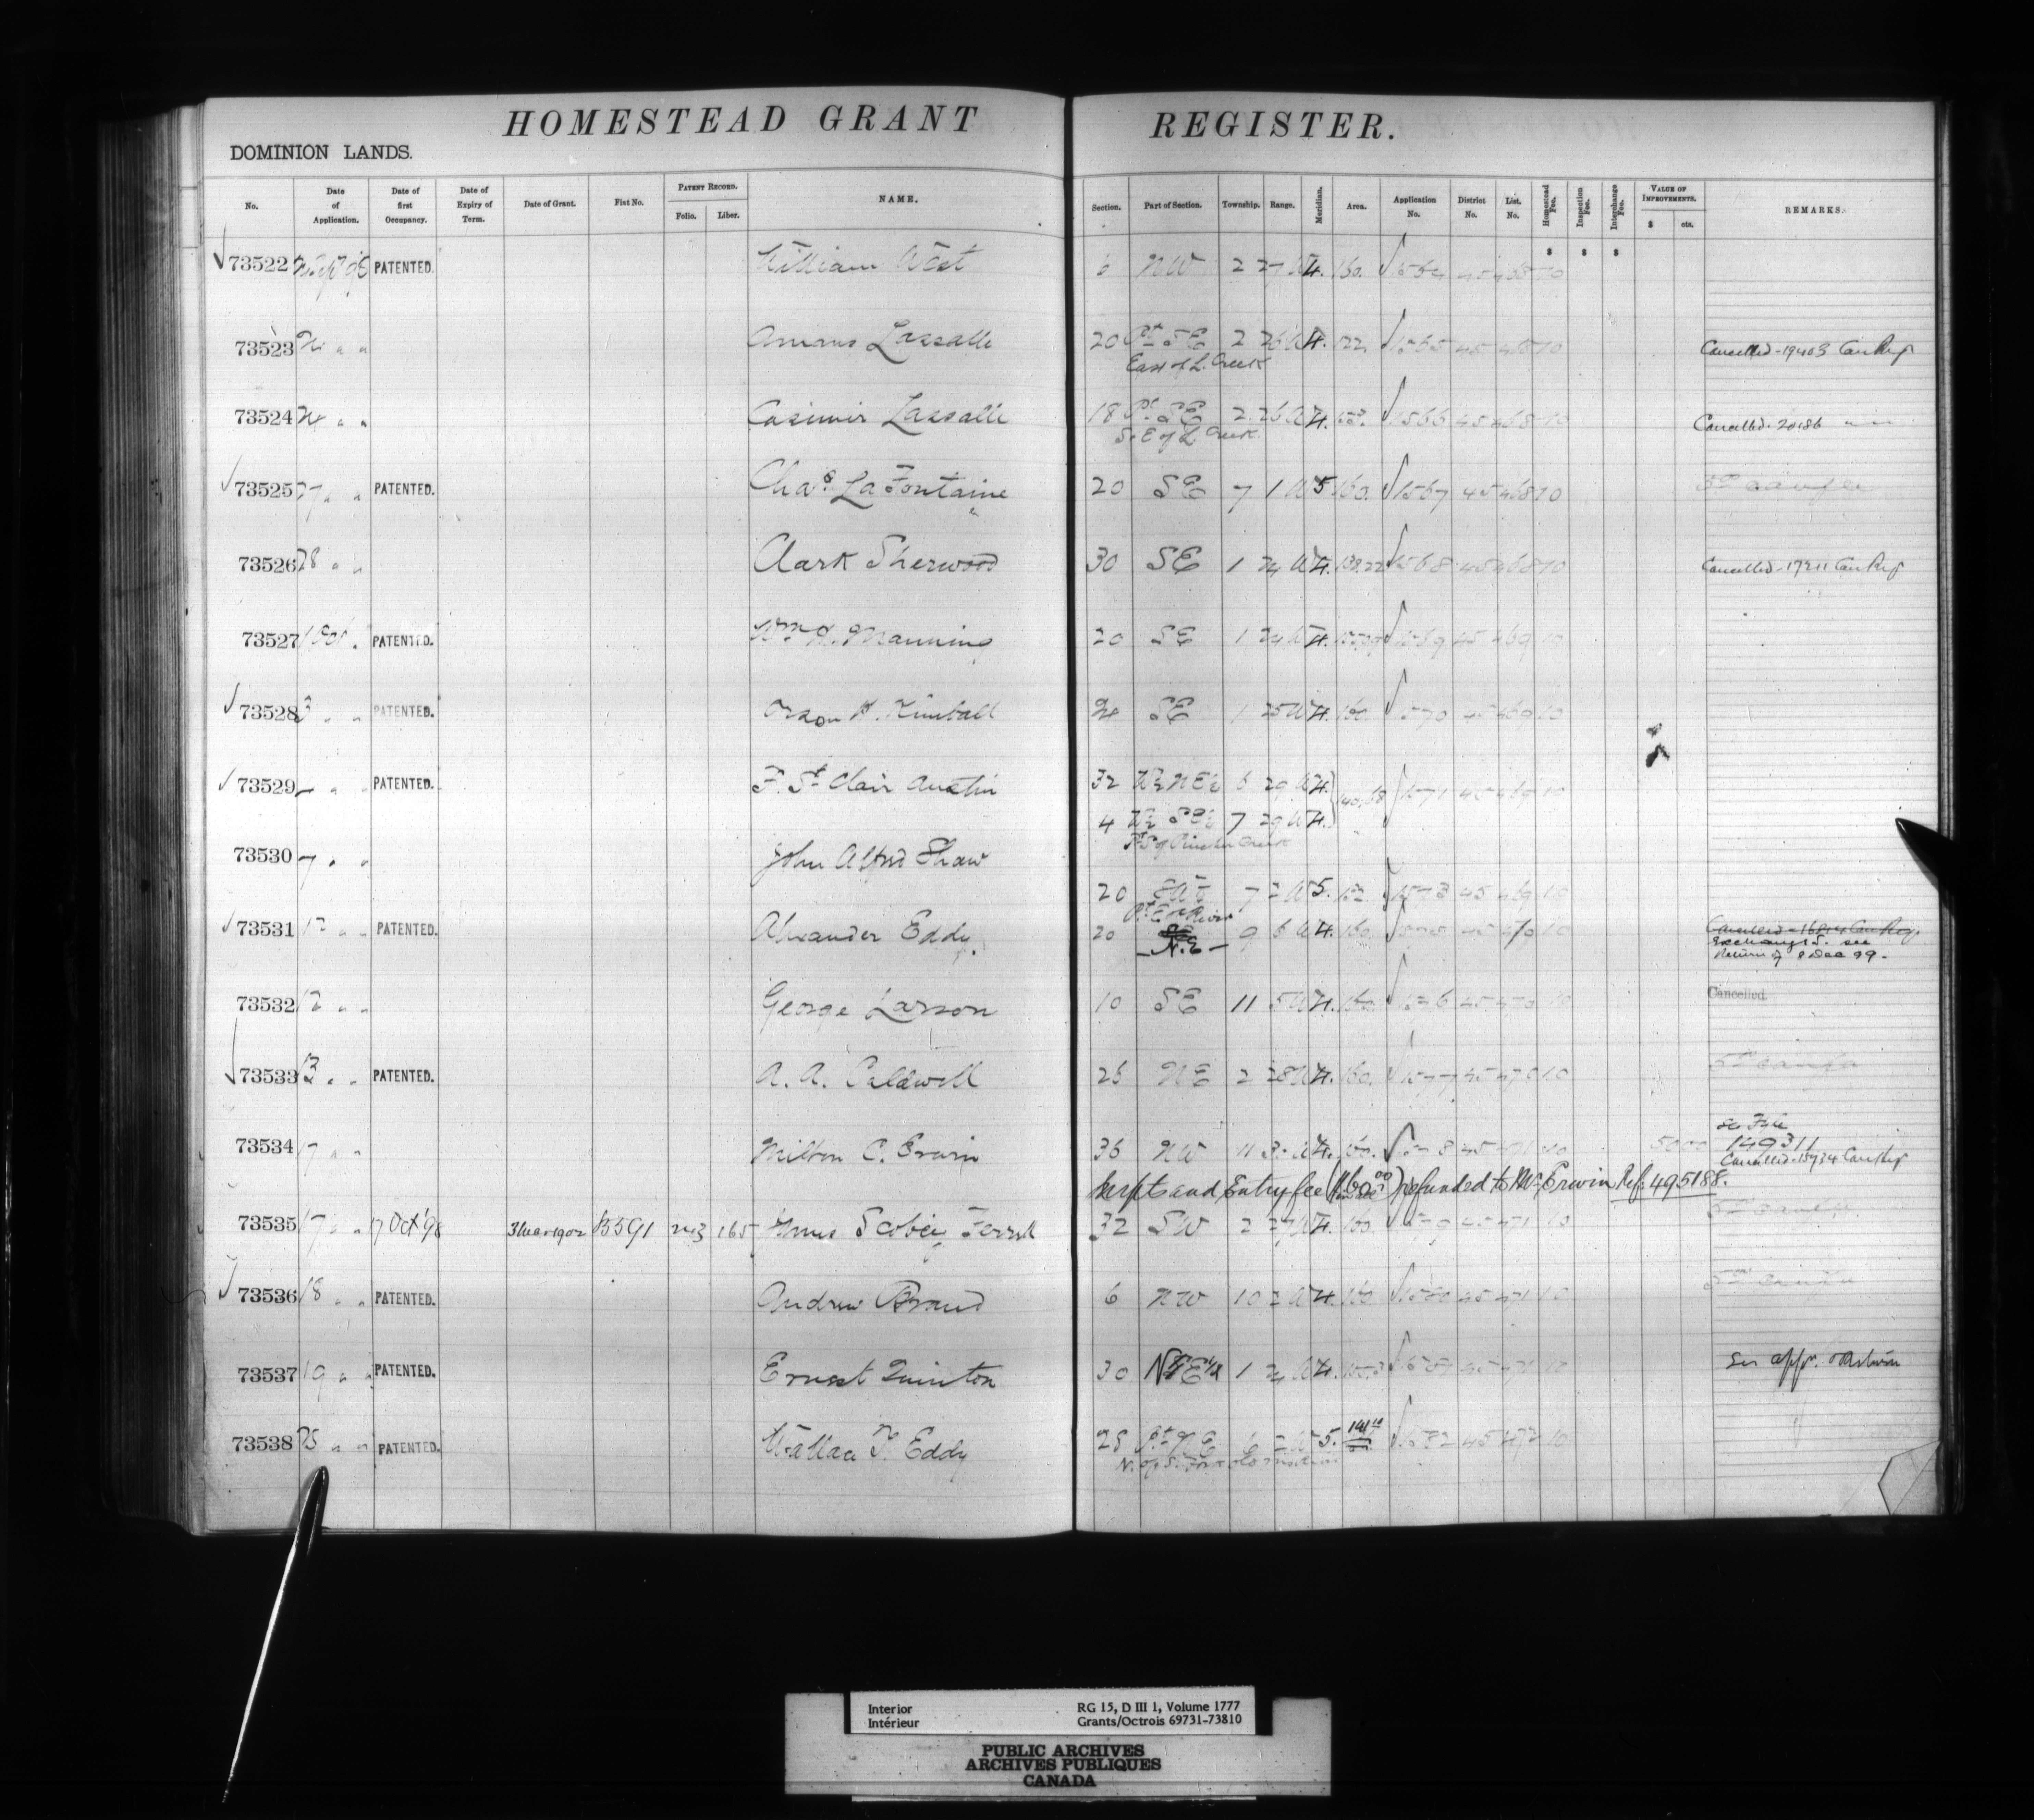 HOMESTEAD GRANT REGISTER.
DOMINION LANDS.
No. Date of Application. Date of first Occupancy. Date of Expiry of Term. Date of Grant. Fiat No. PATENT RECORD. Folio. Liber. NAME. Section. Part of Section. Township. Range. Meridian. Area. Application No. District No. List. No. Homestead Fee. Inspection Fee. Interchange Fee. VALUE OF IMPROVEMENTS. $ cts. REMARKS.
$ $ $
73522 PATENTED. William West 6 NW 2 27 W 4. 160. 1564 45 468 10
73523 " " Lassalle 20 Pt SE 2 26 W 4. 122 1565 45 468 10 Cancelled - 19403 Can Reg
East of L. Creek
73524 " " Casimir Lassalle 18 Pt SE 2 26 W 4. 1566 45 468 10 Cancelled - 20186 " "
S. E of L. Creek
73525 27 " " PATENTED. Chas La Fontaine 20 SE 7 1 W 5 160. 1567 45 468 10
73526 28 " " Clark Sherwood 30 SE 1 24 W 4. 1568 45 468 10 Cancelled - 17211 Can Reg
73527 1 Oct " PATENTED. Wm H. Manning 20 SE 1 24 W 4. 1569 45 469 10
73528 3 " " PATENTED. Orson H. Kimball 24 SE 1 25 W 4. 160 1570 45 469 10
73529 " " PATENTED. F. St Clair Austin 32 W½ NE¼ 6 29 W 4. 1571 45 469 10
4 W½ SE¼ 7 29 W 4.
Pt S of Pincher Creek
73530 7 " " John Alfred Shaw
20 7 2 W 5. 1573 45 469 10
Pt E of River
73531 12 " " PATENTED. Alexander Eddy. 20 N.E 9 6 W 4. 160. 45 470 10
Exchanged. see
Return of 8 Dec 99.
73532 12 " " George Larson 10 SE 11 5 W 4. 160. 1576 45 470 10 Cancelled.
73533 13 " " PATENTED. A. A. Caldwell 26 NE 2 28 W 4. 160. 1577 45 470 10
73534 17 " " Milton C. Erwin 36 NW 11 3 W 4. 160. 1578 45 471 10 5000 See File
149311
Cancelled - 18934 Can Reg
and Entry fee refunded to Mr. Erwin Ref. 495188.
73535 17 " " 17 Oct '98 3 Mar 1902 B591 223 165 James Scobie Ferrell 32 SW 2 27 W 4. 160. 1579 45 471 10
73536 18 " " PATENTED. Andrew Braud 6 NW 10 2 W 4. 160. 1580 45 471 10
73537 19 " " PATENTED. Ernest Quinton 30 1 24 W 4. 1581 45 471 10 See appr.
73538 25 " " PATENTED. Wallace T. Eddy 28 Pt NE 6 2 W 5. 1582 45 472 10
Interior RG 15, D III 1, Volume 1777
Intérieur Grants/Octrois 69731-73810
PUBLIC ARCHIVES
ARCHIVES PUBLIQUES
CANADA